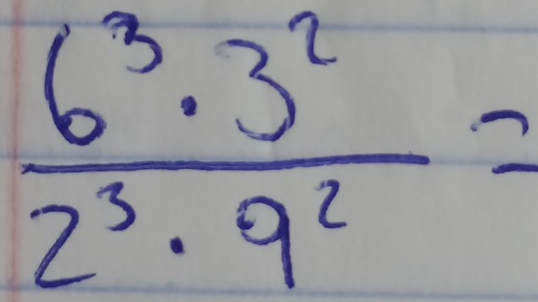 6³ · 3²
2³ · 9² =